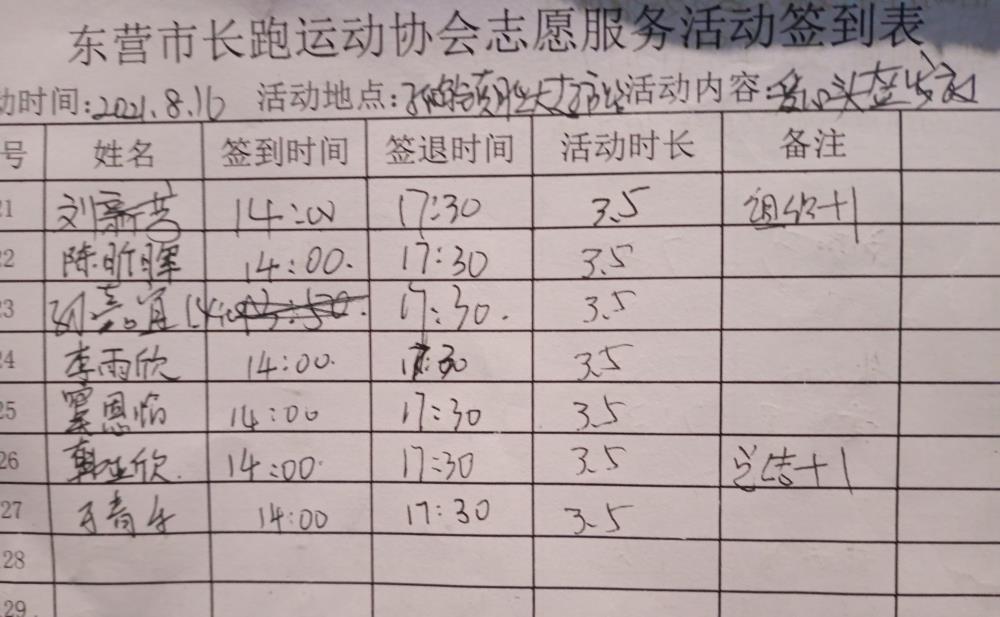 东营市长跑运动协会志愿服务活动签到表
动时间:2021.8.16 活动地点: 活动内容:
号 姓名 签到时间 签退时间 活动时长 备注
21 刘新芸 14:00 17:30 3.5 组织+1
22 陈昕晖 14:00. 17:30 3.5
23 孙嘉宜 14:00 17:30. 3.5
24 李雨欣 14:00. 17:30 3.5
25 窦恩怡 14:00 17:30 3.5
26 欣. 14:00. 17:30 3.5 总结+1
27 14:00 17:30 3.5
28
29